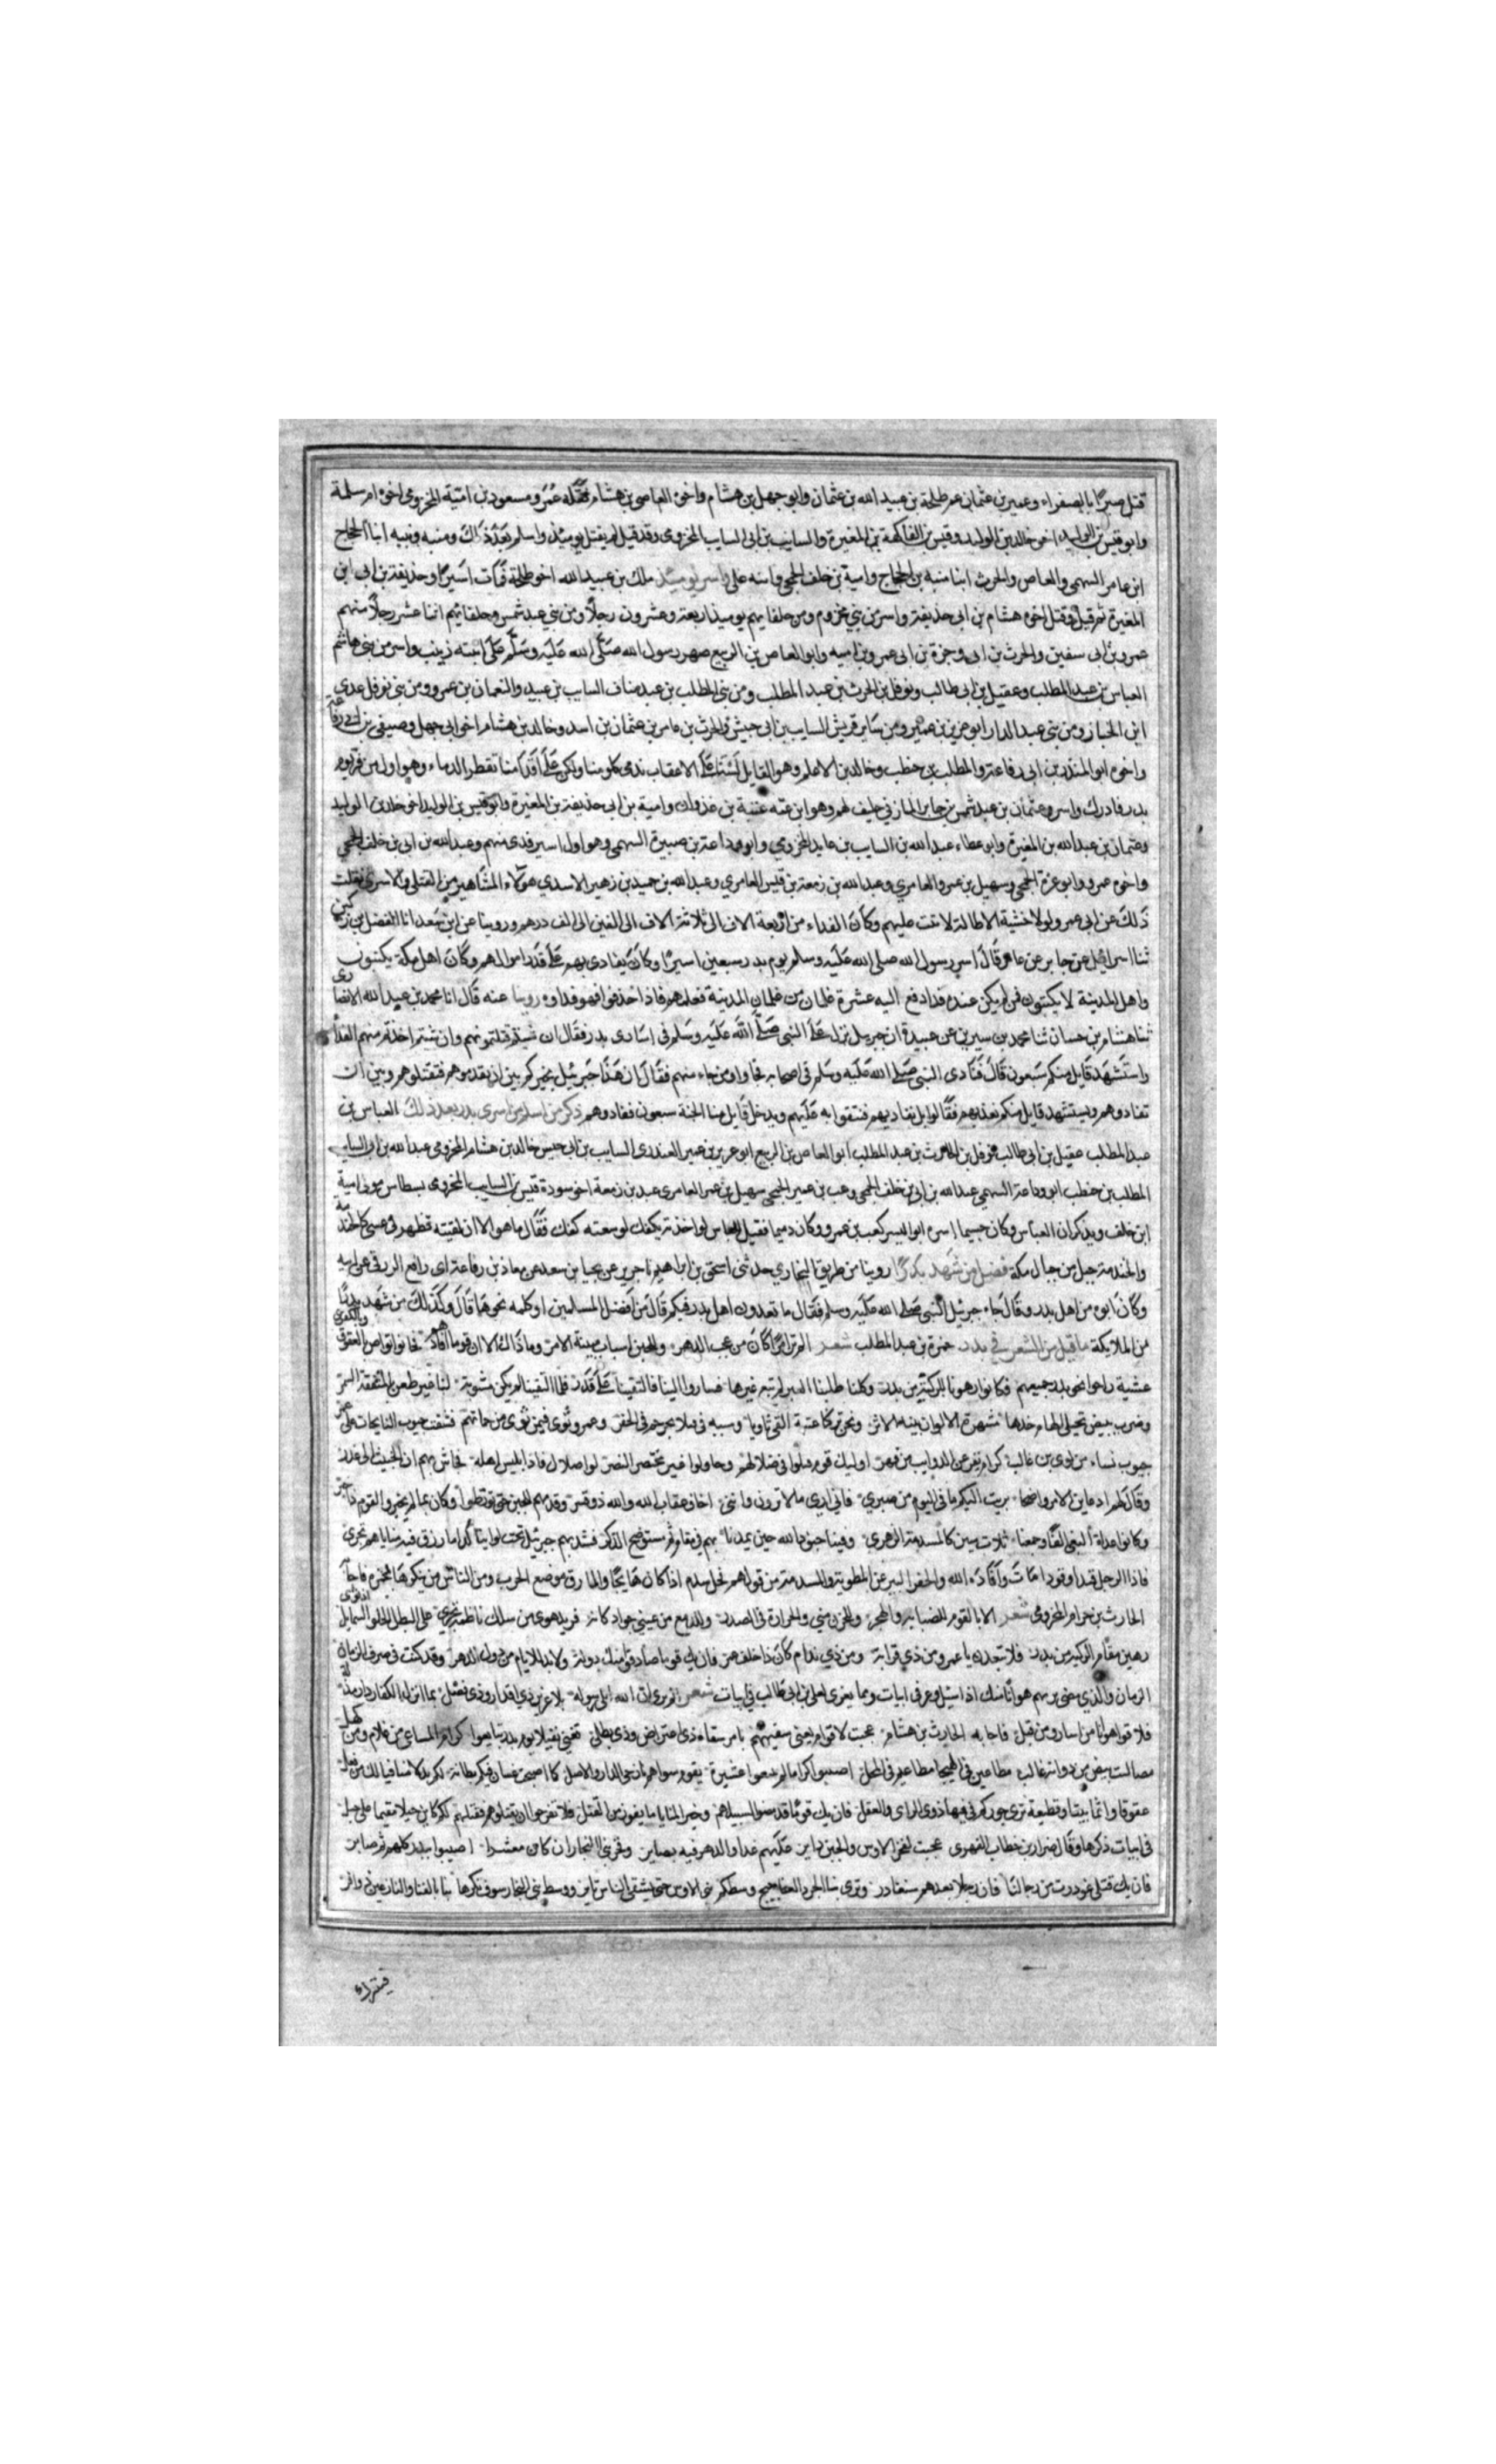 قتل صبرًا بالصفراء وعمير بن عثمان عم طلحة بن عبيد الله بن عثمان وابو جهل بن هشام واخوه العاصي بن هشام قتله عمر ومسعود بن امية المخزومي اخو ام سلمة
وابو قيس بن الوليد اخو خالد بن الوليد وقيس بن الفاكهة بن المغيرة والسايب بن ابي السايب المخزومي وقد قيل لم يقتل يوميذ واسلم بعد ذاك ومنبه ونبيه ابنا الحجاج
ابن عامر السهمي والعاص والحرث ابنا منبه بن الحجاج وامية بن خلف الجمحي وابنه علي واسر يوميذ ملك بن عبيد الله اخو طلحة فمات اسيرًا وحذيفة بن ابي ابن
المغيرة ثم قيل وقتل اخوه هشام بن ابي حذيفة واسر من بني مخزوم ومن حلفايهم يوميذ اربعة وعشرون رجلًا ومن بني عبد شمس وحلفايهم اثنا عشر رجلًا منهم
عمرو بن ابي سفين والحرث بن ابي وجزة بن ابي عمرو بن اميه وابو العاص بن الربيع صهر رسول الله صلى الله عليه وسلم على ابنته زينب واسر من بني هاشم
العباس بن عبد المطلب وعقيل بن ابي طالب ونوفل بن الحرث بن عبد المطلب ومن بني المطلب بن عبد مناف السايب بن عبيد والنعمان بن عمرو ومن بني نوفل عدي
ابن الخيار ومن بني عبد الدار ابو عزيز بن عمير ومن ساير قريش السايب بن ابي حبيش والحرث بن عامر بن عثمان بن اسد وخالد بن هشام اخو ابي جهل وصيفي بن ابي رفاعة
واخوه ابو المنذر بن ابي رفاعة والمطلب بن حنطب وخالد بن الاعلم وهو القايل لسنا على الاعقاب ندمي كلومنا ولكن على اقدامنا تقطر الدماء وهو اول من فر يوم
بدر فادرك واسر وعثمان بن عبد شمس بن جابر المازني حليف لهم وهو ابن عمه عتبة بن غزوان وامية بن ابي حذيفة بن المغيرة وابو قيس بن الوليد اخو خالد بن الوليد
وعثمان بن عبد الله بن المغيرة وابو عطاء عبد الله بن السايب بن عايد المخزومي وابو وداعة بن صبيرة السهمي وهو اول اسير فدى منهم وعبد الله بن ابي بن خلف الجمحي
واخوه عمرو وابو عزة الجمحي وسهيل بن عمرو العامري وعبد الله بن زمعة بن قيس العامري وعبد الله بن حميد بن زهير الاسدي هولاء المشاهير من القتلى والاسرى نقلت
ذلك عن ابي عمر ولولا خشية الاطالة لاتيت عليهم وكان الفداء من اربعة الاف الى ثلاثة الاف الى الفين الى الف درهم وروينا عن ابن سعد انا الفضل بن دكين
ثنا اسرائيل عن جابر عن عامر قال اسر رسول الله صلى الله عليه وسلم يوم بدر سبعين اسيرًا وكان يفادي بهم على قدر اموالهم وكان اهل مكة يكتبون
واهل المدينة لا يكتبون فمن لم يكن عنده فدا دفع اليه عشرة غلمان من غلمان المدينة فعلمهم فاذا حذقوا فهو فداوه روينا عنه قال انا محمد بن عبد الله الانصاري
ثنا هشام بن حسان ثنا محمد بن سيرين عن عبيدة ان جبريل نزل على النبي صلى الله عليه وسلم في اسارى بدر فقال ان شيتم قتلتموهم وان شيتم اخذتم منهم الفدا
واستشهد قابل منكم سبعون قال فنادى النبي صلى الله عليه وسلم في اصحابه فجاوا او من جاء منهم فقال ان هذا جبرئيل يخيركم بين ان تقدموهم فتقتلوهم وبين ان
تفادوهم ويستشهد قابل منكم بعدتهم فقالوا بل نفاديهم فنتقوا به عليهم ويدخل قابل منا الجنة سبعون ففادوهم ذكر من اسلم من اسرى بدر بعد ذلك العباس بن
عبد المطلب عقيل بن ابي طالب نوفل بن الحرث بن عبد المطلب ابو العاص بن الربيع ابو عزيز بن عمير العبدري السايب بن ابي حبيش خالد بن هشام المخزومي عبد الله بن ابي السايب
المطلب بن حنطب ابو وداعة السهمي عبد الله بن ابي بن خلف الجمحي وهب بن عمير الجمحي سهيل بن عمرو العامري عبد بن زمعة اخو سودة قيس بن السايب المخزومي نسطاس مولى امية
ابن خلف ويذكر ان العباس وكان جسيما اسره ابو اليسر كعب بن عمرو وكان دميما فقيل للعباس لو اخذته بكفك لوسعته كفك فقال ما هو الا ان لقيته فظهر في عيني كالخندمة
والخندمة جبل من جبال مكة فضيل من شهد بدرًا روينا من طريق البخاري حدثني اسحق بن ابراهيم انا جرير عن يحيا بن سعد عن معاذ بن رفاعة ابن رافع الزرقي عن ابيه
وكان ابوه من اهل بدر وقال جاء جبرئيل النبي صلى الله عليه وسلم فقال ما تعدون اهل بدر فيكم قال من افضل المسلمين او كلمة نحوها قال وكذلك من شهد بدرًا
من الملايكة ما قيل من الشعر في بدر حمزة بن عبد المطلب شعر الم تر امرًا كان من عجب الدهر وللحين اسباب مبينة الامر وما ذاك الا ان قوما افادهم فخانوا تواص بالعقوق وبالكفر
عشية راحوا نحو بدر جميعهم فكانوا رهونا للركية من بدر وكنا طلبنا العير لم نبغ غيرها فساروا الينا فالتقينا على قدر فلما التقينا لم يكن مثنوية لنا غير طعن بالمثقفة السمر
وضرب ببيض تختلي الهام حدها مشهرة الالوان بينة الاثر ونحن تركنا عتبة الغي ثاويا وشيبة في قتلا تجرجم في الجفر وعمرو ثوى فيمن ثوى من حماتهم فشقت جيوب النايحات على عمرو
جيوب نساء من لوي بن غالب كرام تفرعن الذوايب من فهر اوليك قوم قتلوا في ضلالهم وخلوا لوا غير محتضر النصر لوا ضلال قاد ابليس اهله فخاش بهم ان الخبيث الى غدر
وقال لهم اذ عاين الامر واضحا بريت اليكم ما بي اليوم من صبري فاني ارى ما لا ترون وانني اخاف عقاب الله والله ذو قسر فقدمهم للحين حتى تورطوا وكان بما لم يخبر القوم ذا خبر
وكانوا غداة البير الفًا وجمعنا ثلاث ميين كالمسدمة الزهر وفينا جنود الله حين يمدنا بهم في مقام ثم مستوضح الذكر فشد بهم جبرئيل تحت لواينا لدا مازق فيه مناياهم تجري
فاد الرجل فيدا وفودا مات وافاده الله والجفر البير غير المطوية والمسدمة من قولهم فحل سدم اذا كان هايجًا والمازق موضع الحرب ومن الناس من ينكرها لحمزه فاجابه
الحارث بن هشام المخزومي شعر الا يا لقوم للصبابة والهجر وللحزن مني والحرارة في الصدر وللدمع من عيني جوادا كانه فريد هوى من سلك ناظمه يجري على البطل الحلو الشمايل اذ ثوى
رهين مقام للركية من بدر فلا تبعدن يا عمرو من ذي قرابة ومن ذي ندام كان ذا خلق غمر فان يك قوم صادفوا منك دولة ولا بد للايام من دول الدهر وقد كنت في صرف الزمان
الزمان والذي مضى تريهم هوانًا منك اذا سبل وعر في ابيات ومما يعزى لعلي بن ابي طالب في ابيات شعر الم تر ان الله ابلى رسوله بلاء عزيز ذي اقتدار وذي فضل بما انزل الكفار دار مذلة
فلاقوا هوانًا من اسار ومن قتل فاجابه الحارث بن هشام عجبت لاقوام يغني سفيههم بامر سفاه ذي اعتراض وذي بطل تغني بقتلا يوم بدر تتابعوا كرام المساعي من غلام ومن كهل
مصاليت بيض من ذوابة غالب مطاعين في الهيجا مطاعيم في المحل اصيبوا كراما لم يبيعوا عشيرة بقوم سواهم نازحي الدار والاصل كما اصبحت غسان فيكم بطانة لكم بدلا منا فيا لك من فعل
عقوقا واثما بينا وقطيعة ترى جوركم فيها ذوو الراي والعقل فان يك قومًا قد مضوا لسبيلهم وخير المنايا ما يكون من القتل فلا تفرحوا ان تقتلوهم فقتلهم لكم كاين خبلا مقيما على خبل
في ابيات ذكرها وقال ضرار بن خطاب الفهري عجبت لفخر الاوس والحين داير عليهم غدا والدهر فيه بصاير وفخر بني النجار ان كان معشرا اصيبوا ببدر كلهم ثم صابر
فان يك قتلى غودرت من رجالنا فان رجلا بعدهم سنغادر وتردي بنا الجرد العناجيج وسطكم بني الاوس حتى يشفي الناس ثاير ووسط بني النجار سوف نكرها بنا بالقنا والدارعين زوافر
فيتراه